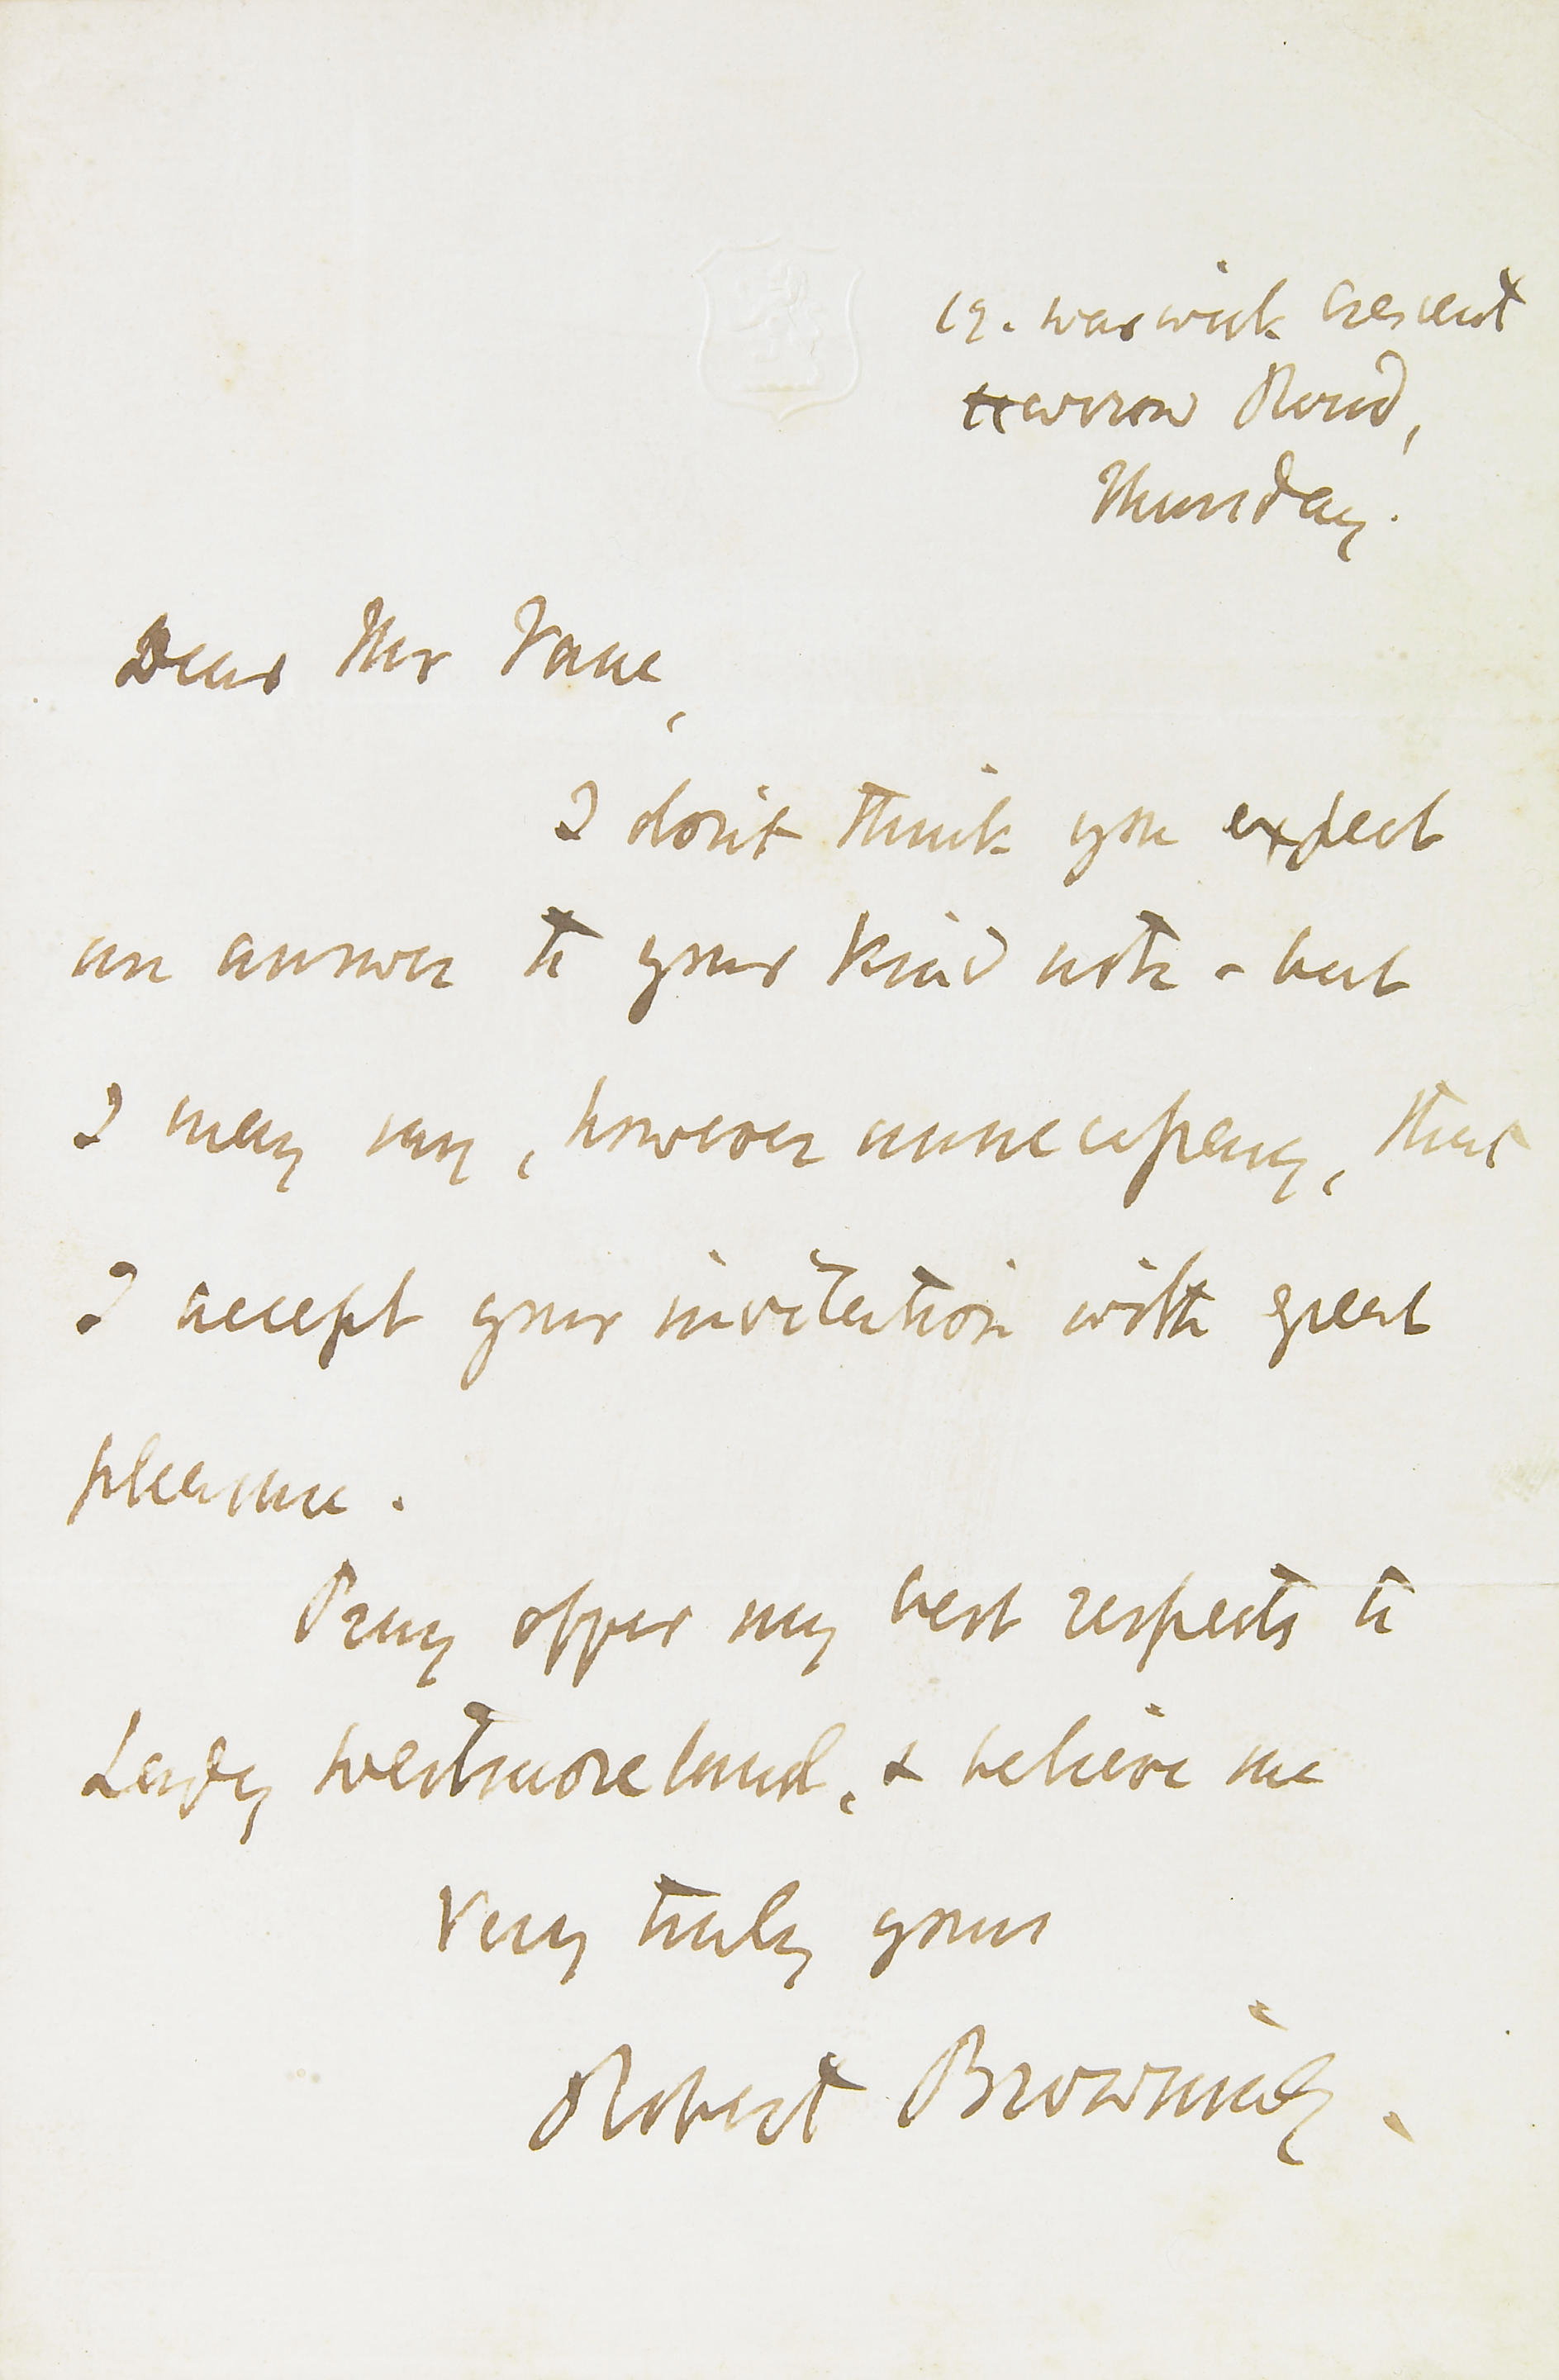 19. Warwick Crescent
Harrow Road,
Thursday.
Dear Mr Vane,
I don't think you expect
an answer to your kind note - but
I may say, however unnecessary, that
I accept your invitation with great
pleasure.
Pray offer my best respects to
Lady Westmoreland, & believe me
Very truly yours
Robert Browning.